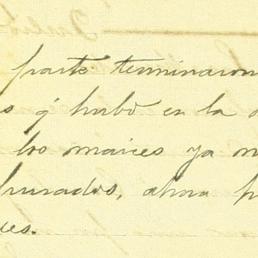 parte terminaron
s q' hubo en la
los maices ya
ahora
es.